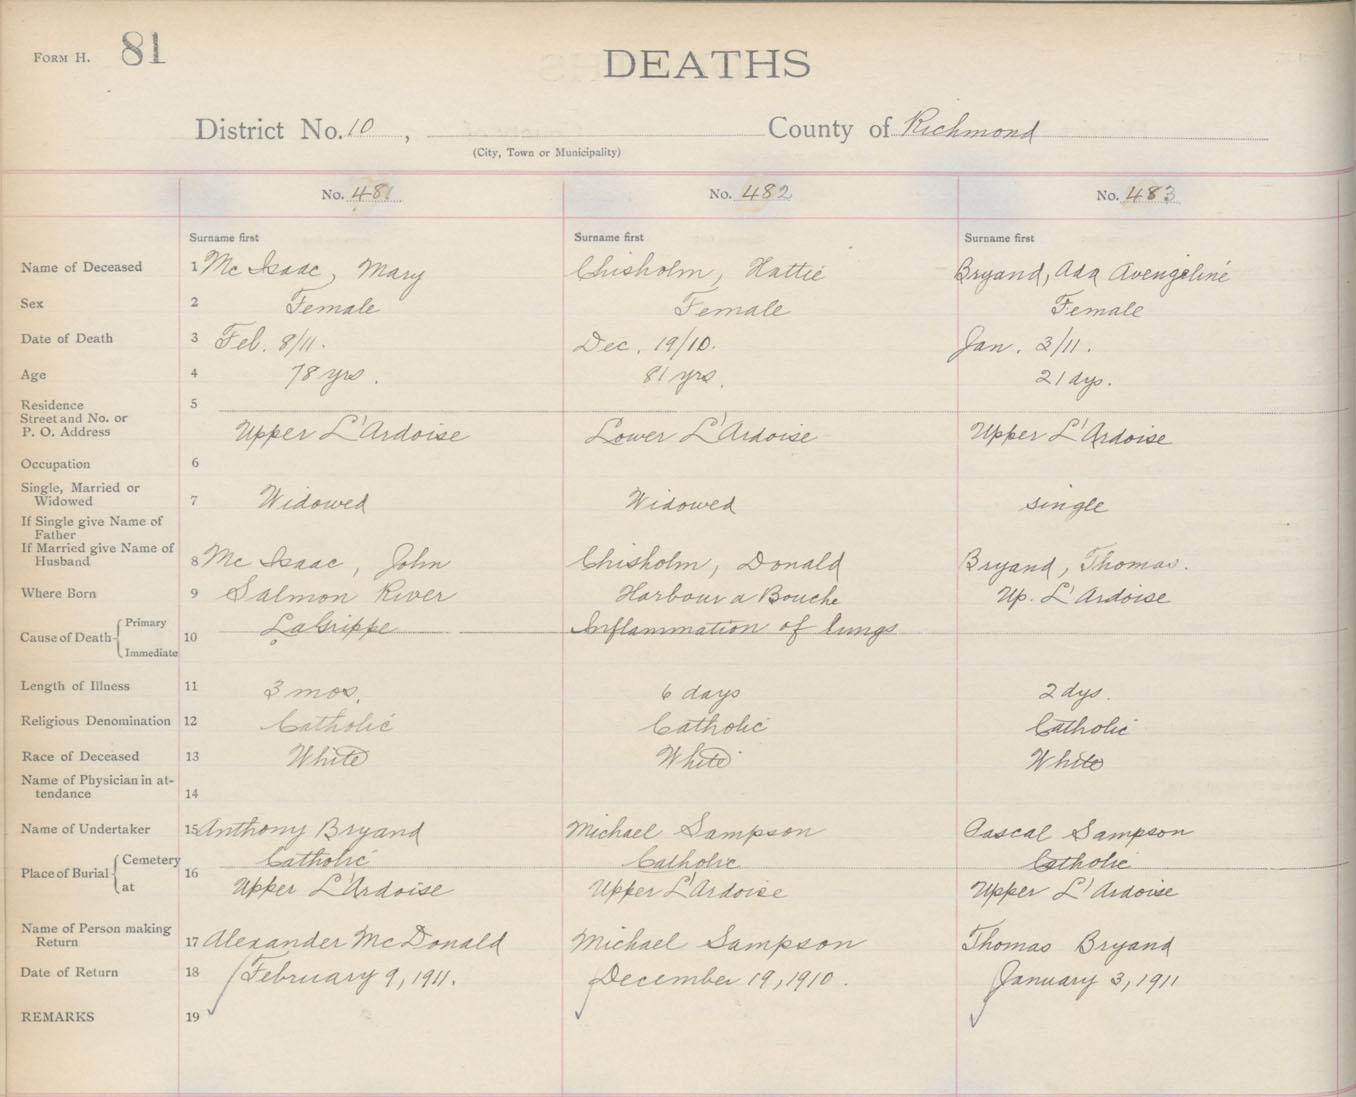 FORM H. 81
DEATHS
District No. 10, County of Richmond
(City, Town or Municipality)
No. 481 No. 482 No. 483
Surname first Surname first Surname first
Name of Deceased 1 Mc Isaac, Mary Chisholm, Hattie Bryand, Ada Avengeline
Sex 2 Female Female Female
Date of Death 3 Feb. 8/11. Dec. 19/10. Jan. 3/11.
Age 4 78 yrs. 81 yrs. 21 dys.
Residence 5
Street and No. or
P. O. Address Upper L'Ardoise Lower L'Ardoise Upper L'Ardoise
Occupation 6
Single, Married or
Widowed 7 Widowed Widowed single
If Single give Name of
Father
If Married give Name of
Husband 8 Mc Isaac, John Chisholm, Donald Bryand, Thomas.
Where Born 9 Salmon River Harbour a Bouche Up. L'Ardoise
Cause of Death Primary 10 LaGrippe Inflammation of lungs
Immediate
Length of Illness 11 3 mos. 6 days 2 dys.
Religious Denomination 12 Catholic Catholic Catholic
Race of Deceased 13 White White White
Name of Physician in at-
tendance 14
Name of Undertaker 15 Anthony Bryand Michael Sampson Pascal Sampson
Place of Burial Cemetery 16 Catholic Catholic Catholic
at Upper L'Ardoise Upper L'Ardoise Upper L'Ardoise
Name of Person making
Return 17 Alexander McDonald Michael Sampson Thomas Bryand
Date of Return 18 February 9, 1911. December 19, 1910. January 3, 1911
REMARKS 19